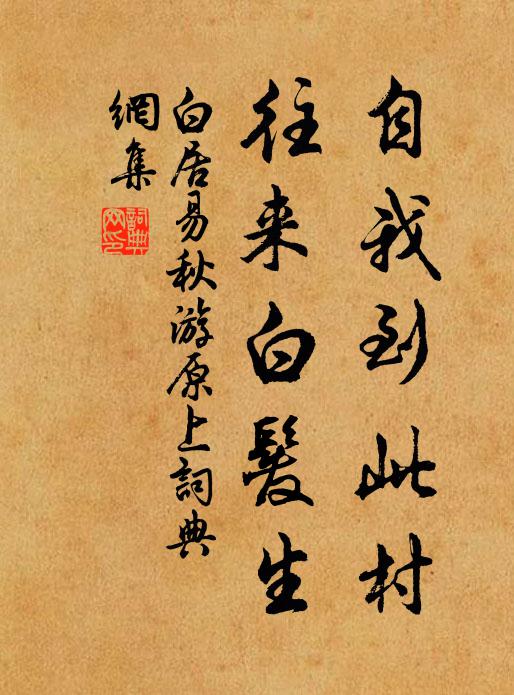 自我到此村
往来白髮生
白居易秋游原上詞典
網集
詞典
网印